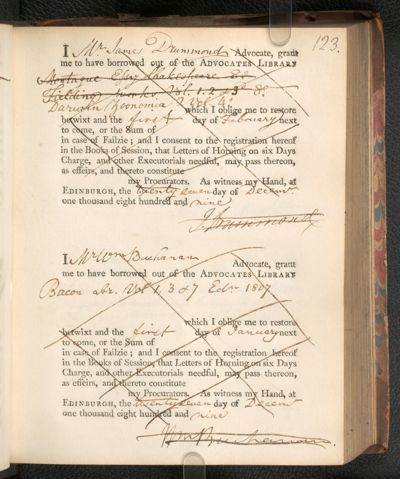 123.
I Mr James Drummond Advocate, grant
me to have borrowed out of the ADVOCATES LIBRARY
Montague Essay Shakespeare 8o
Fielding Works Vol. 1. 2 & 3d 8o
Darwin Zoonomia 2 Vol 4o
which I oblige me to restore
betwixt and the first day of February next
to come, or the Sum of
in case of Failzie; and I consent to the registration hereof
in the Books of Session, that Letters of Horning on six Days
Charge, and other Executorials needful, may pass thereon,
as effeirs, and thereto constitute
my Procurators. As witness my Hand, at
EDINBURGH, the twenty seven day of Decemr
one thousand eight hundred and nine
J. Drummond
I Mr Wm Buchanan Advocate, grant
me to have borrowed out of the ADVOCATES LIBRARY
Bacon abr. Vol 1. 3 & 7 Edn 1807
which I oblige me to restore
betwixt and the first day of January next
to come, or the Sum of
in case of Failzie; and I consent to the registration hereof
in the Books of Session, that Letters of Horning on six Days
Charge, and other Executorials needful, may pass thereon,
as effeirs, and thereto constitute
my Procurators. As witness my Hand, at
EDINBURGH, the twenty seven day of Decemr
one thousand eight hundred and nine
Wm Buchanan